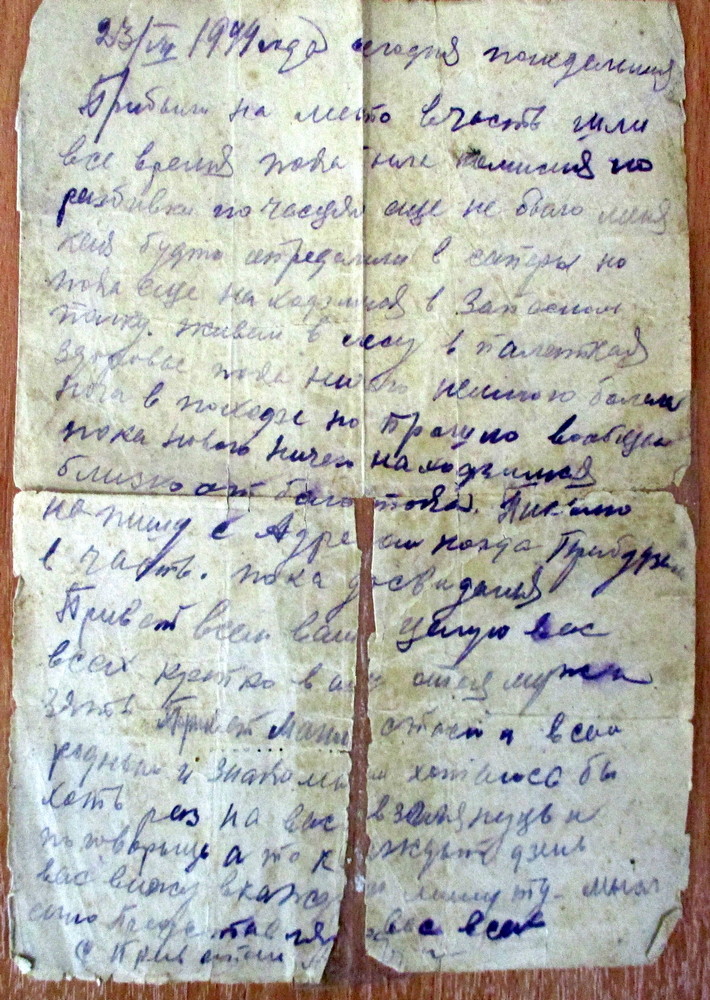 23/VII 1944 года сегодня понедельник
Прибыли на место в часть шли
все время пока комисия по
разбивки по частям еще не было меня
будто определили в саперы но
пока еще находимся в Запасном
полку. живем в лесу в палатках
здоровье пока ничего немного болела
нога в походе но Прошло вообщем
пока нового ничего находимся
близко от
напишу с Адресом когда Прибудем
в часть. пока досвидания
Привет всем вам целую вас
всех крепко ваш отец муж и
зять Привет Мане и всем
родным и знакомым хотелось бы
хоть раз на вас взглянуть и
поговорить а то каждый день
вас вижу в каждую минуту мысленно
Представляя вас всех
С Приветом